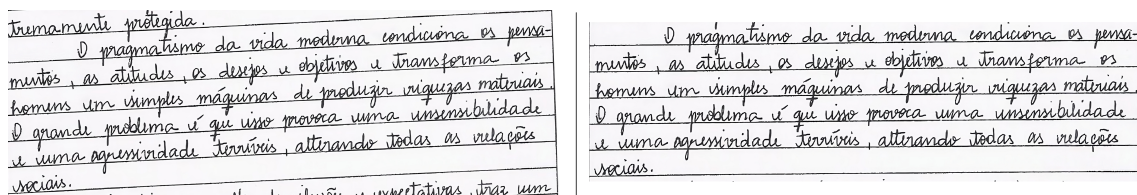 tremamente protegida.
O pragmatismo da vida moderna condiciona os pensa-
mentos, as atitudes, os desejos e objetivos e transforma os
homens em simples máquinas de produzir riquezas materiais.
O grande problema é que isso provoca uma insensibilidade
e uma agressividade terríveis, alterando todas as relações
sociais.
e expectativas, traz um
O pragmatismo da vida moderna condiciona os pensa-
mentos, as atitudes, os desejos e objetivos e transforma os
homens em simples máquinas de produzir riquezas materiais.
O grande problema é que isso provoca uma insensibilidade
e uma agressividade terríveis, alterando todas as relações
sociais.